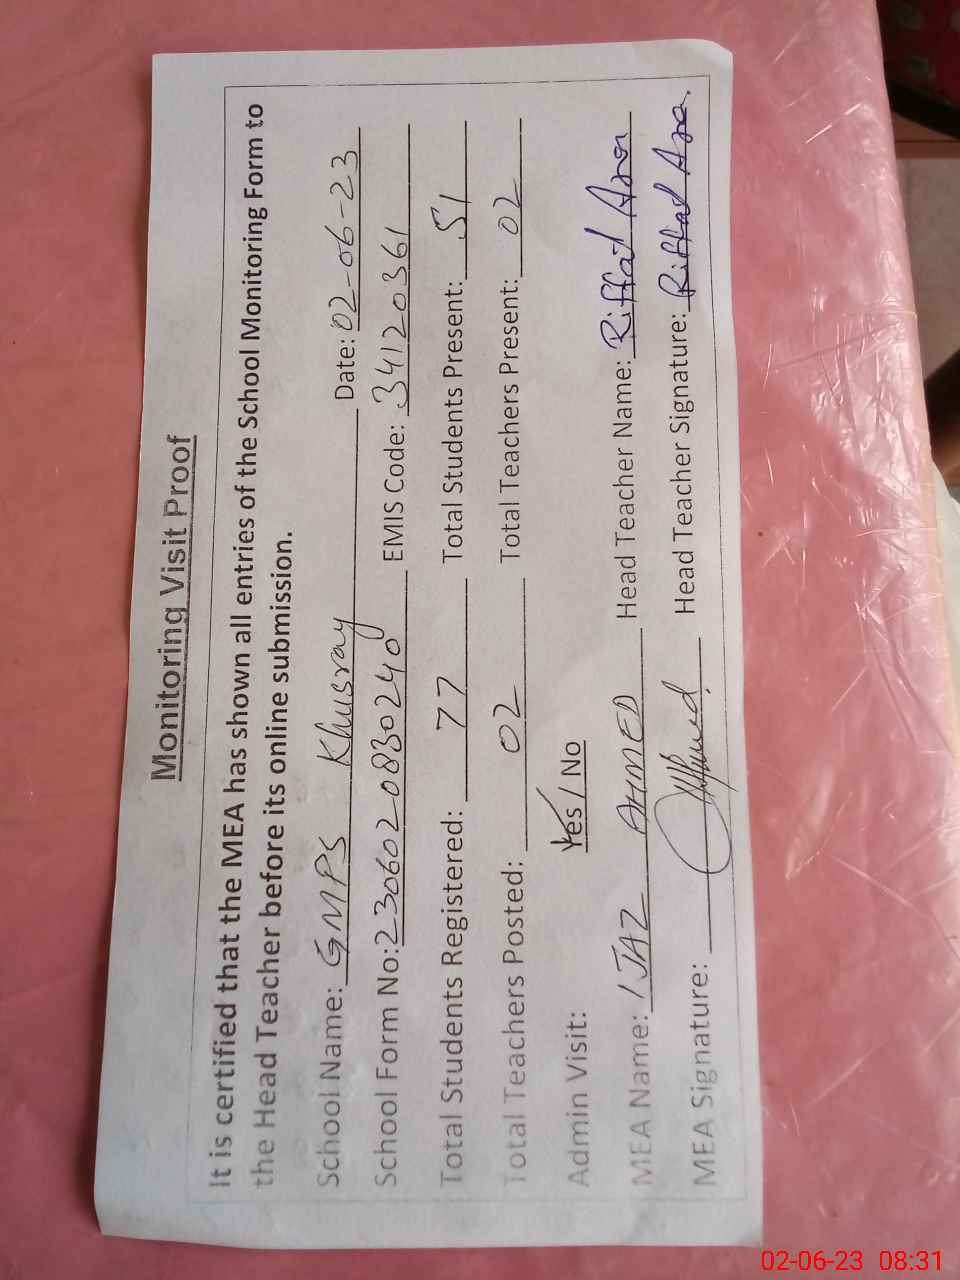 Monitoring Visit Proof
It is certified that the MEA has shown all entries of the School Monitoring Form to
the Head Teacher before its online submission.
School Name: GMPS Khusray Date: 02-06-23
School Form No: 2306020830240 EMIS Code: 34120361
Total Students Registered: 77 Total Students Present: 51
Total Teachers Posted: 02 Total Teachers Present: 02
Admin Visit: Yes / No
MEA Name: IJAZ AHMED Head Teacher Name: Riffat Ara
MEA Signature: Head Teacher Signature: Riffat Ara.
02-06-23 08:31